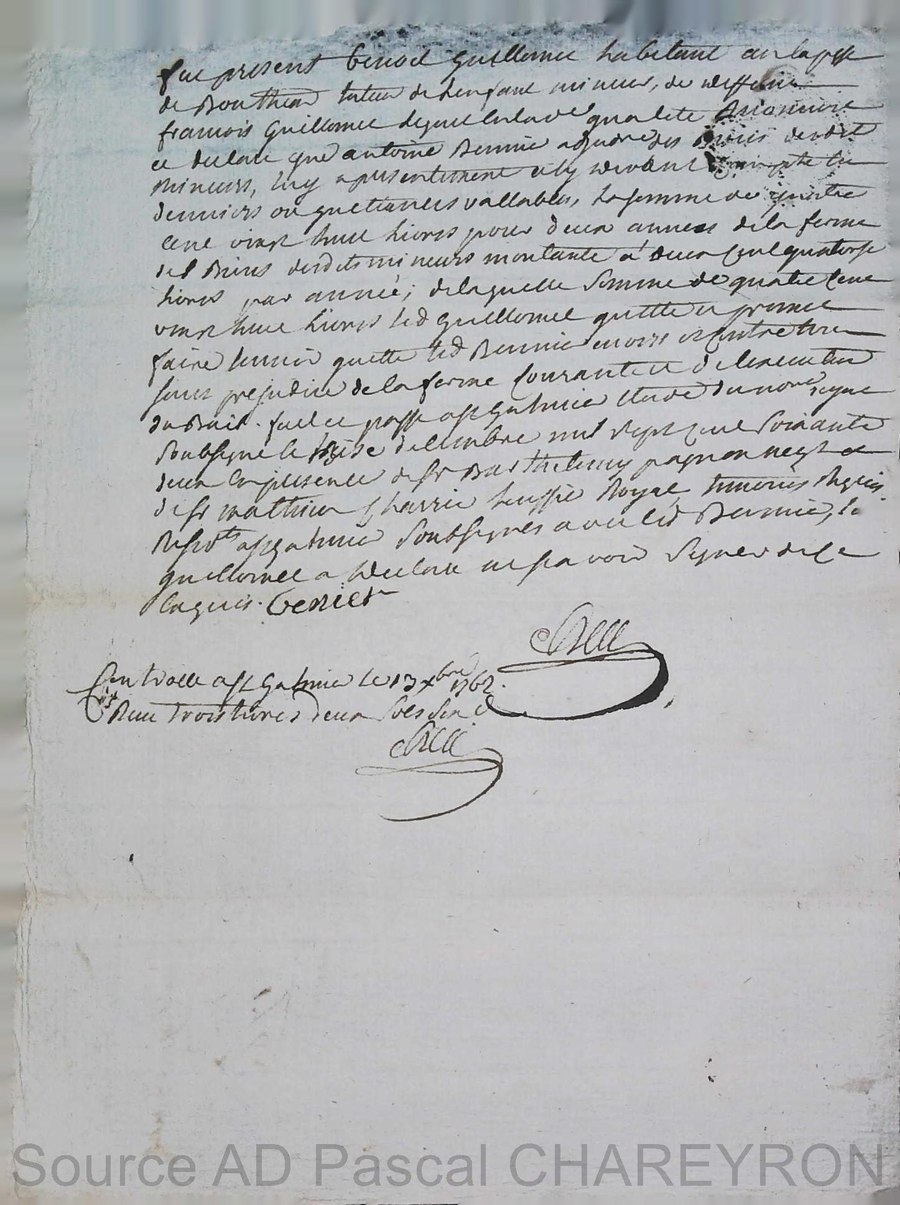 fut present benoit guillomee habitant en la psse
de Bouthion tuteur de lenfant mineur, de deffunt
francois Guillomee lequel en lade qualité
et declare que antoine Bennier des dudit
mineurs, luy a presentement
denniers ou quittances vallables, la somme de quatre
cent vingt huit livres pour deux annees de la ferme
des Biens desdits mineurs montante a deux cent quatorse
livres par année; de laquelle somme de quatre cent
vingt huit livres led Guillomee quitte et promet
faire tenir quitte led Bennier envers et contre tous
sans prejudice de la ferme courante et de lexecution
du Bail. fait et passé a st Galmier Etude du nore royal
soubsigné le treise decembre mil sept cent soixante
deux en presence de sr Barthelemy pagnon negt et
de sr mathieu Charrin huissier Royal temoins Requis
Residts a st galmier soubsignés avec led Bennier, led
guillomee a declaré ne scavoir signer de ce
enquis. Bennier

Controllé a st Galmier le 13 xbre 1762.
Reçu trois livres deux sols six d

Source AD Pascal CHAREYRON